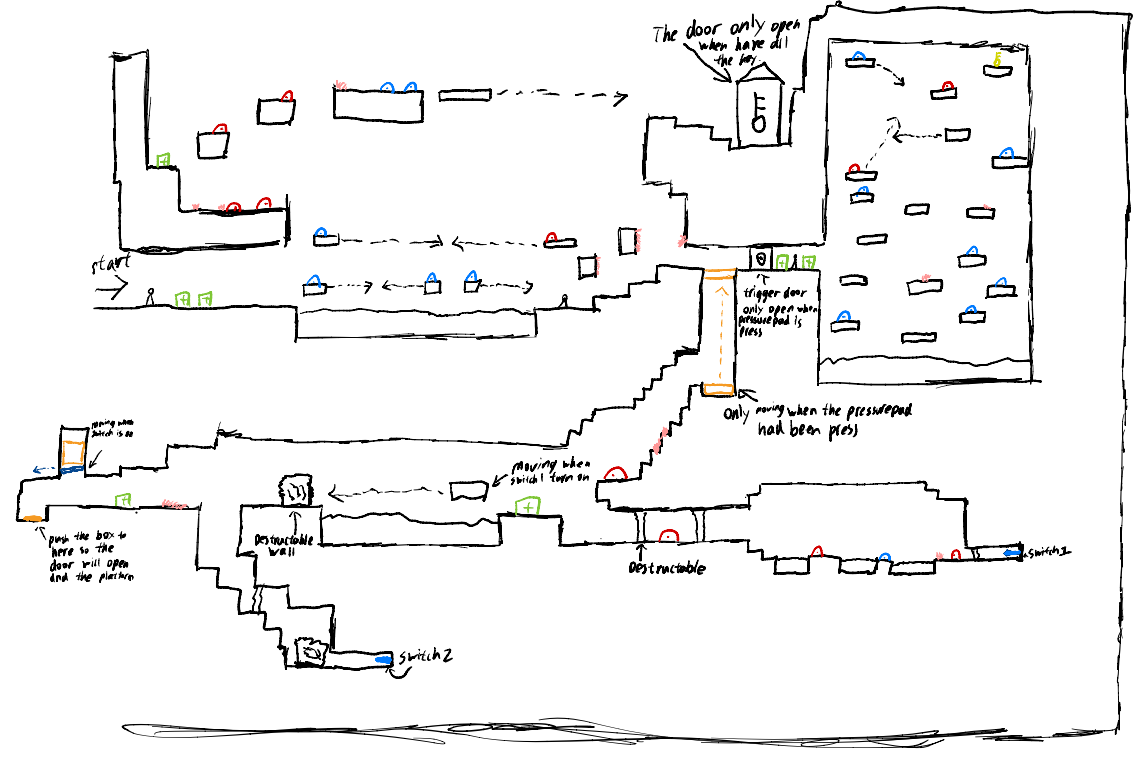 The door only open
when have all
the key
start
trigger door
only open when
pressurepad is
press
Only moving when the pressurepad
had been press
moving when
switch is on
moving when
switch1 turn on
push the box to
here so the
door will open
and the platform
Destructable
wall
Destructable
Switch1
Switch2